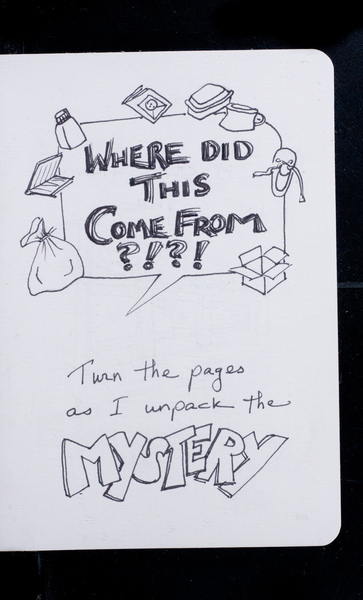 WHERE DID
THIS
COME FROM
?!?!
Turn the pages
as I unpack the
MYSTERY